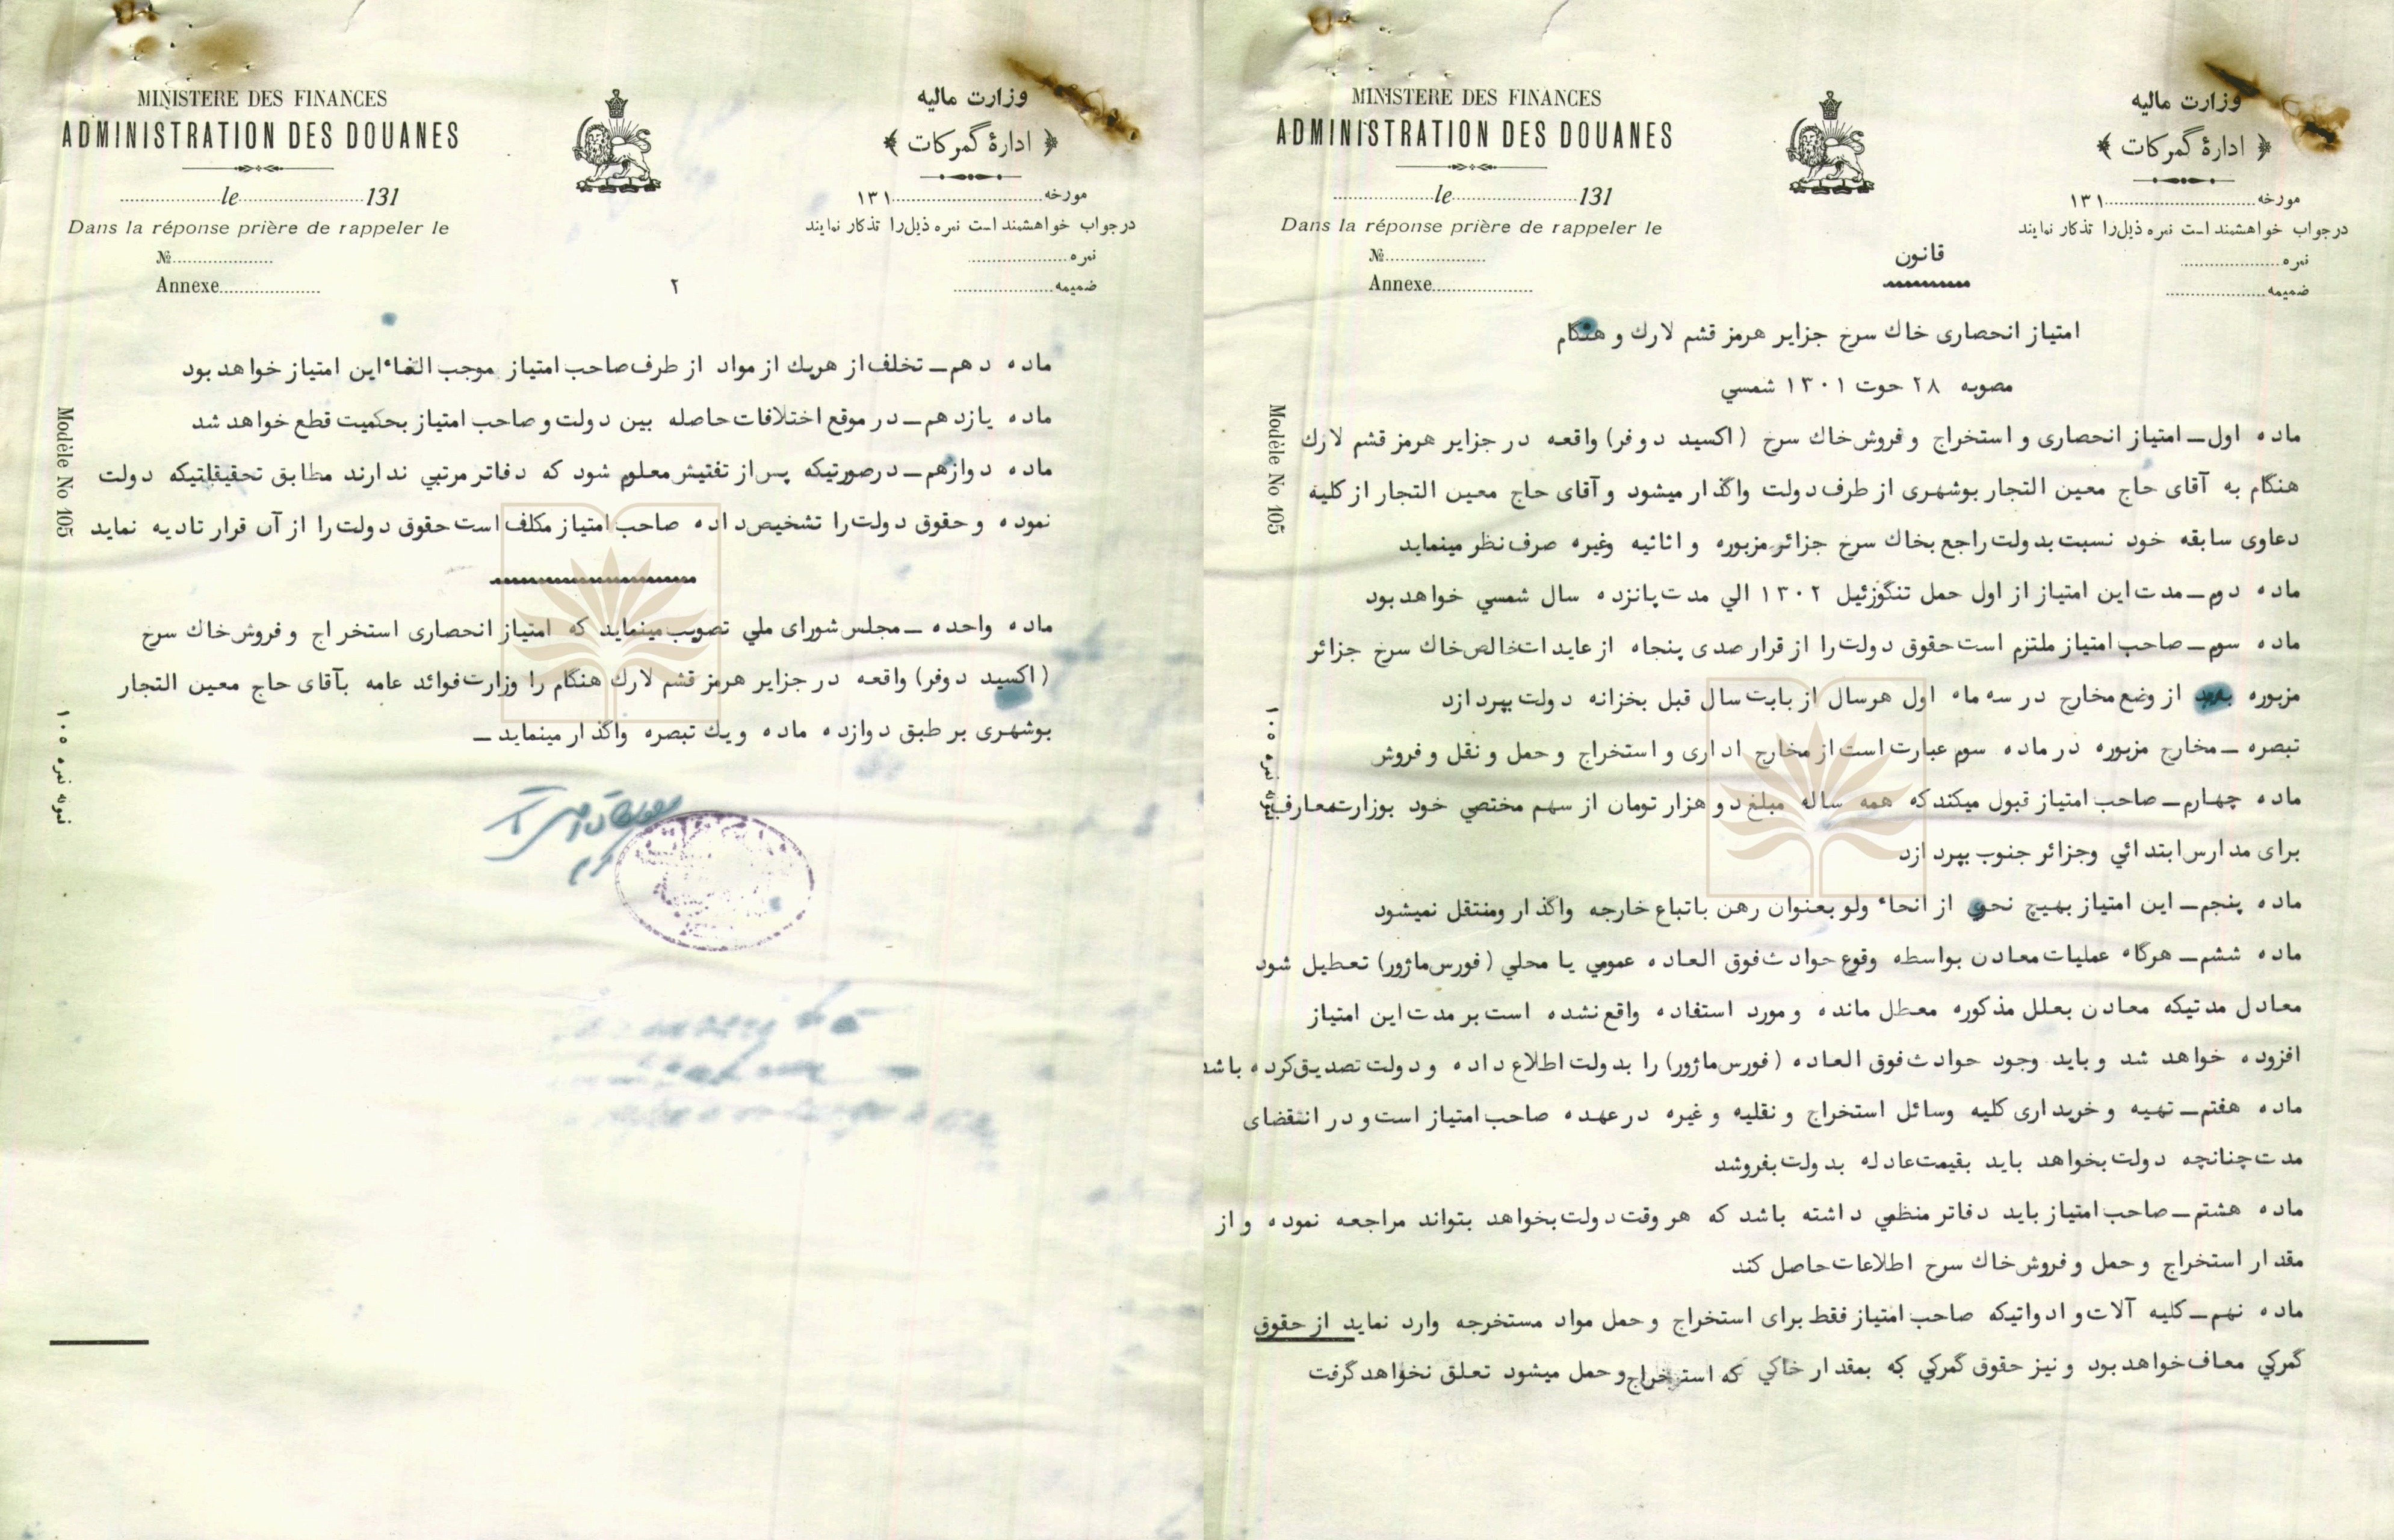 MINISTERE DES FINANCES
ADMINISTRATION DES DOUANES
le 131
Dans la réponse prière de rappeler le
№
Annexe
وزارت مالیه
ادارهٔ گمرکات
مورخه ۱۳۱
در جواب خواهشمند است نمره ذیل را تذکار نمایند
نمره
ضمیمه
Modèle No 105
نمونه نمره ۱۰۵
قانون
امتیاز انحصاری خاك سرخ جزایر هرمز قشم لارك و هنگام
مصوبه ۲۸ حوت ۱۳۰۱ شمسي
ماده اول ــ امتیاز انحصاری و استخراج و فروش خاك سرخ (اکسید دوفر) واقعه در جزایر هرمز قشم لارك
هنگام به آقای حاج معین التجار بوشهری از طرف دولت واگذار میشود و آقای حاج معین التجار از کلیه
دعاوی سابقه خود نسبت بدولت راجع بخاك سرخ جزائر مزبوره و اثاثیه وغیره صرف نظر مینماید
ماده دوم ــ مدت این امتیاز از اول حمل تنگوزئیل ۱۳۰۲ الي مدت پانزده سال شمسي خواهد بود
ماده سوم ــ صاحب امتیاز ملتزم است حقوق دولت را از قرار صدی پنجاه از عایدات خالص خاك سرخ جزائر
مزبوره بعد از وضع مخارج در سه ماه اول هرسال از بابت سال قبل بخزانه دولت بپردازد
تبصره ــ مخارج مزبوره در ماده سوم عبارت است از مخارج اداری و استخراج و حمل و نقل و فروش
ماده چهارم ــ صاحب امتیاز قبول میکند که همه ساله مبلغ دو هزار تومان از سهم مختصي خود بوزارت معارف
برای مدارس ابتدائي وجزائر جنوب بپردازد
ماده پنجم ــ این امتیاز بهیچ نحوی از انحاء ولو بعنوان رهن باتباع خارجه واگذار ومنتقل نمیشود
ماده ششم ــ هرگاه عملیات معادن بواسطه وقوع حوادث فوق العاده عمومي یا محلي (فورس ماژور) تعطیل شود
معادل مدتیکه معادن بعلل مذکوره معطل مانده و مورد استفاده واقع نشده است بر مدت این امتیاز
افزوده خواهد شد و باید وجود حوادث فوق العاده (فورس ماژور) را بدولت اطلاع داده و دولت تصدیق کرده باشد
ماده هفتم ــ تهیه و خریداری کلیه وسائل استخراج و نقلیه و غیره در عهده صاحب امتیاز است و در انتقضای
مدت چنانچه دولت بخواهد باید بقیمت عادله بدولت بفروشد
ماده هشتم ــ صاحب امتیاز باید دفاتر منظمي داشته باشد که هر وقت دولت بخواهد بتواند مراجعه نموده و از
مقدار استخراج و حمل و فروش خاك سرخ اطلاعات حاصل کند
ماده نهم ــ کلیه آلات و ادواتیکه صاحب امتیاز فقط برای استخراج و حمل مواد مستخرجه وارد نماید از حقوق
گمرکي معاف خواهد بود و نیز حقوق گمرکي به بمقدار خاکي که استخراج و حمل میشود تعلق نخواهد گرفت
MINISTERE DES FINANCES
ADMINISTRATION DES DOUANES
le 131
Dans la réponse prière de rappeler le
№
Annexe
وزارت مالیه
ادارهٔ گمرکات
مورخه ۱۳۱
در جواب خواهشمند است نمره ذیل را تذکار نمایند
نمره
ضمیمه
Modèle No 105
نمونه نمره ۱۰۵
۲
ماده دهم ــ تخلف از هریك از مواد از طرف صاحب امتیاز موجب الغاء این امتیاز خواهد بود
ماده یازدهم ــ در موقع اختلافات حاصله بین دولت و صاحب امتیاز بحکمیت قطع خواهد شد
ماده دوازهم ــ درصورتیکه پس از تفتیش معلوم شود که دفاتر مرتبي ندارند مطابق تحقیقاتیکه دولت
نموده و حقوق دولت را تشخیص داده صاحب امتیاز مکلف است حقوق دولت را از آن قرار تادیه نماید
ماده واحده ــ مجلس شورای ملي تصویب مینماید که امتیاز انحصاری استخراج و فروش خاك سرخ
(اکسید دوفر) واقعه در جزایر هرمز قشم لارك هنگام را وزارت فوائد عامه بآقای حاج معین التجار
بوشهری بر طبق دوازده ماده و یك تبصره واگذار مینماید ــ